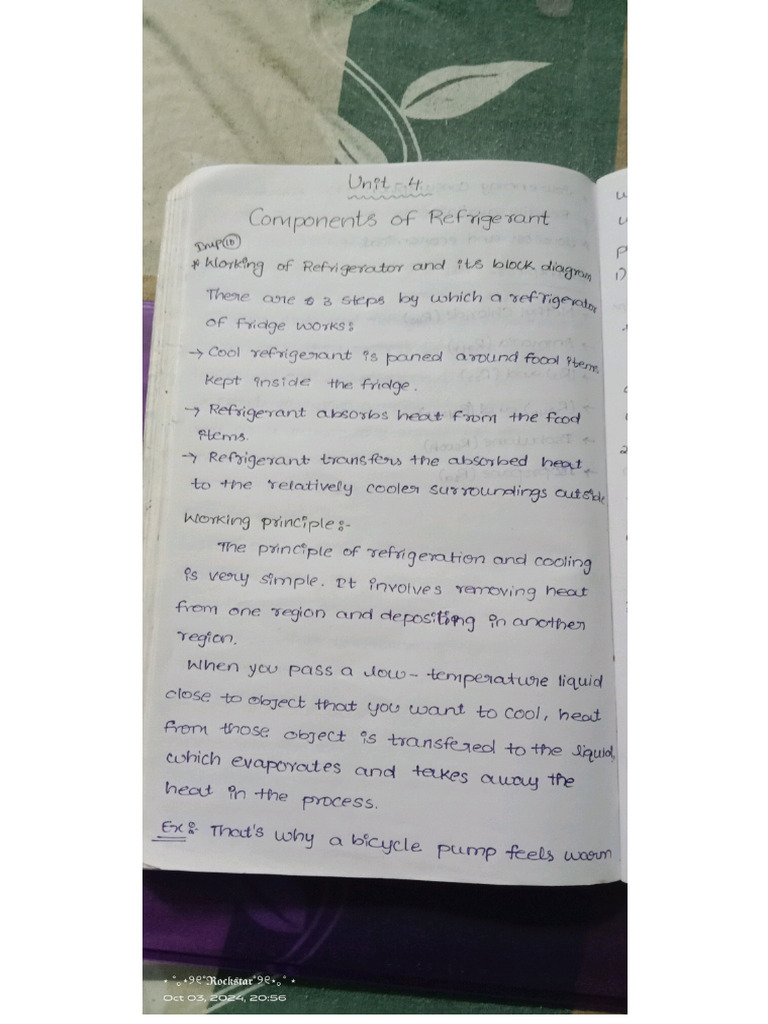 Unit - 4
Components of Refrigerant
Imp(10)
* Working of Refrigerator and its block diagram
There are 3 steps by which a refrigerator
of fridge works:
→ Cool refrigerant is paned around food items
kept inside the fridge.
→ Refrigerant absorbs heat from the food
items.
→ Refrigerant transfers the absorbed heat
to the relatively cooler surroundings outside
Working principle:-
The principle of refrigeration and cooling
is very simple. It involves removing heat
from one region and depositing in another
region.
When you pass a low-temperature liquid
close to object that you want to cool, heat
from those object is transfered to the liquid,
which evaporates and takes away the
heat in the process.
Ex:- That's why a bicycle pump feels warm
Rockstar
Oct 03, 2024, 20:56